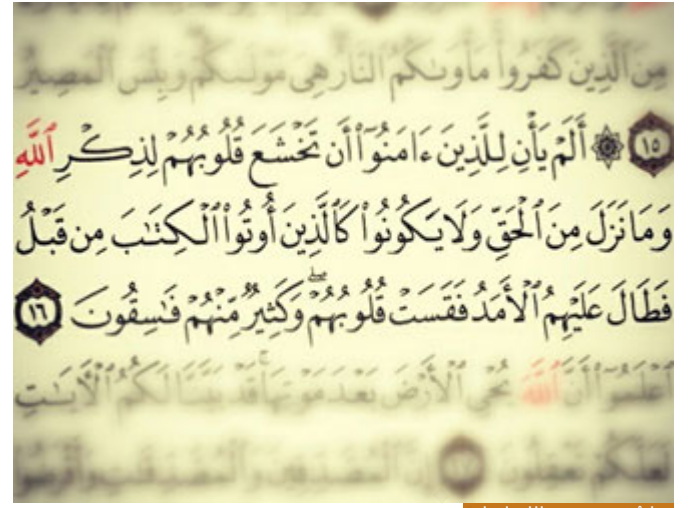 مِنَ ٱلَّذِينَ كَفَرُوا۟ مَأْوَىٰكُمُ ٱلنَّارُ هِىَ مَوْلَىٰكُمْ وَبِئْسَ ٱلْمَصِيرُ
١٥ ۞ أَلَمْ يَأْنِ لِلَّذِينَ ءَامَنُوٓا۟ أَن تَخْشَعَ قُلُوبُهُمْ لِذِكْرِ ٱللَّهِ
وَمَا نَزَلَ مِنَ ٱلْحَقِّ وَلَا يَكُونُوا۟ كَٱلَّذِينَ أُوتُوا۟ ٱلْكِتَٰبَ مِن قَبْلُ
فَطَالَ عَلَيْهِمُ ٱلْأَمَدُ فَقَسَتْ قُلُوبُهُمْ ۖ وَكَثِيرٌ مِّنْهُمْ فَٰسِقُونَ ١٦
ٱعْلَمُوٓا۟ أَنَّ ٱللَّهَ يُحْىِ ٱلْأَرْضَ بَعْدَ مَوْتِهَا ۚ قَدْ بَيَّنَّا لَكُمُ ٱلْءَايَٰتِ
لَعَلَّكُمْ تَعْقِلُونَ ١٧ إِنَّ ٱلْمُصَّدِّقِينَ وَٱلْمُصَّدِّقَٰتِ وَأَقْرَضُوا۟